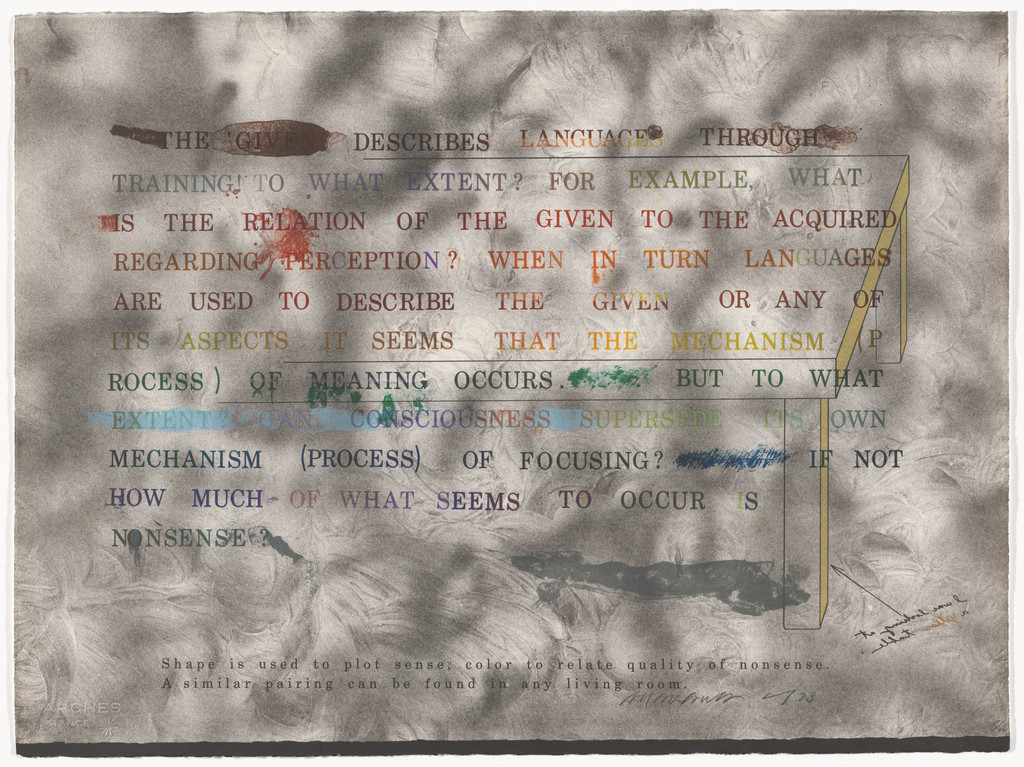 THE 'GIVEN' DESCRIBES LANGUAGES THROUGH
TRAINING! TO WHAT EXTENT? FOR EXAMPLE, WHAT
IS THE RELATION OF THE GIVEN TO THE ACQUIRED
REGARDING PERCEPTION? WHEN IN TURN LANGUAGES
ARE USED TO DESCRIBE THE GIVEN OR ANY OF
ITS ASPECTS IT SEEMS THAT THE MECHANISM (P
ROCESS) OF MEANING OCCURS. BUT TO WHAT
EXTENT CAN CONSCIOUSNESS SUPERSEDE ITS OWN
MECHANISM (PROCESS) OF FOCUSING? IF NOT
HOW MUCH OF WHAT SEEMS TO OCCUR IS
NONSENSE?
Shape is used to plot sense, color to relate quality of nonsense.
A similar pairing can be found in any living room.
73
ARCHES
FRANCE